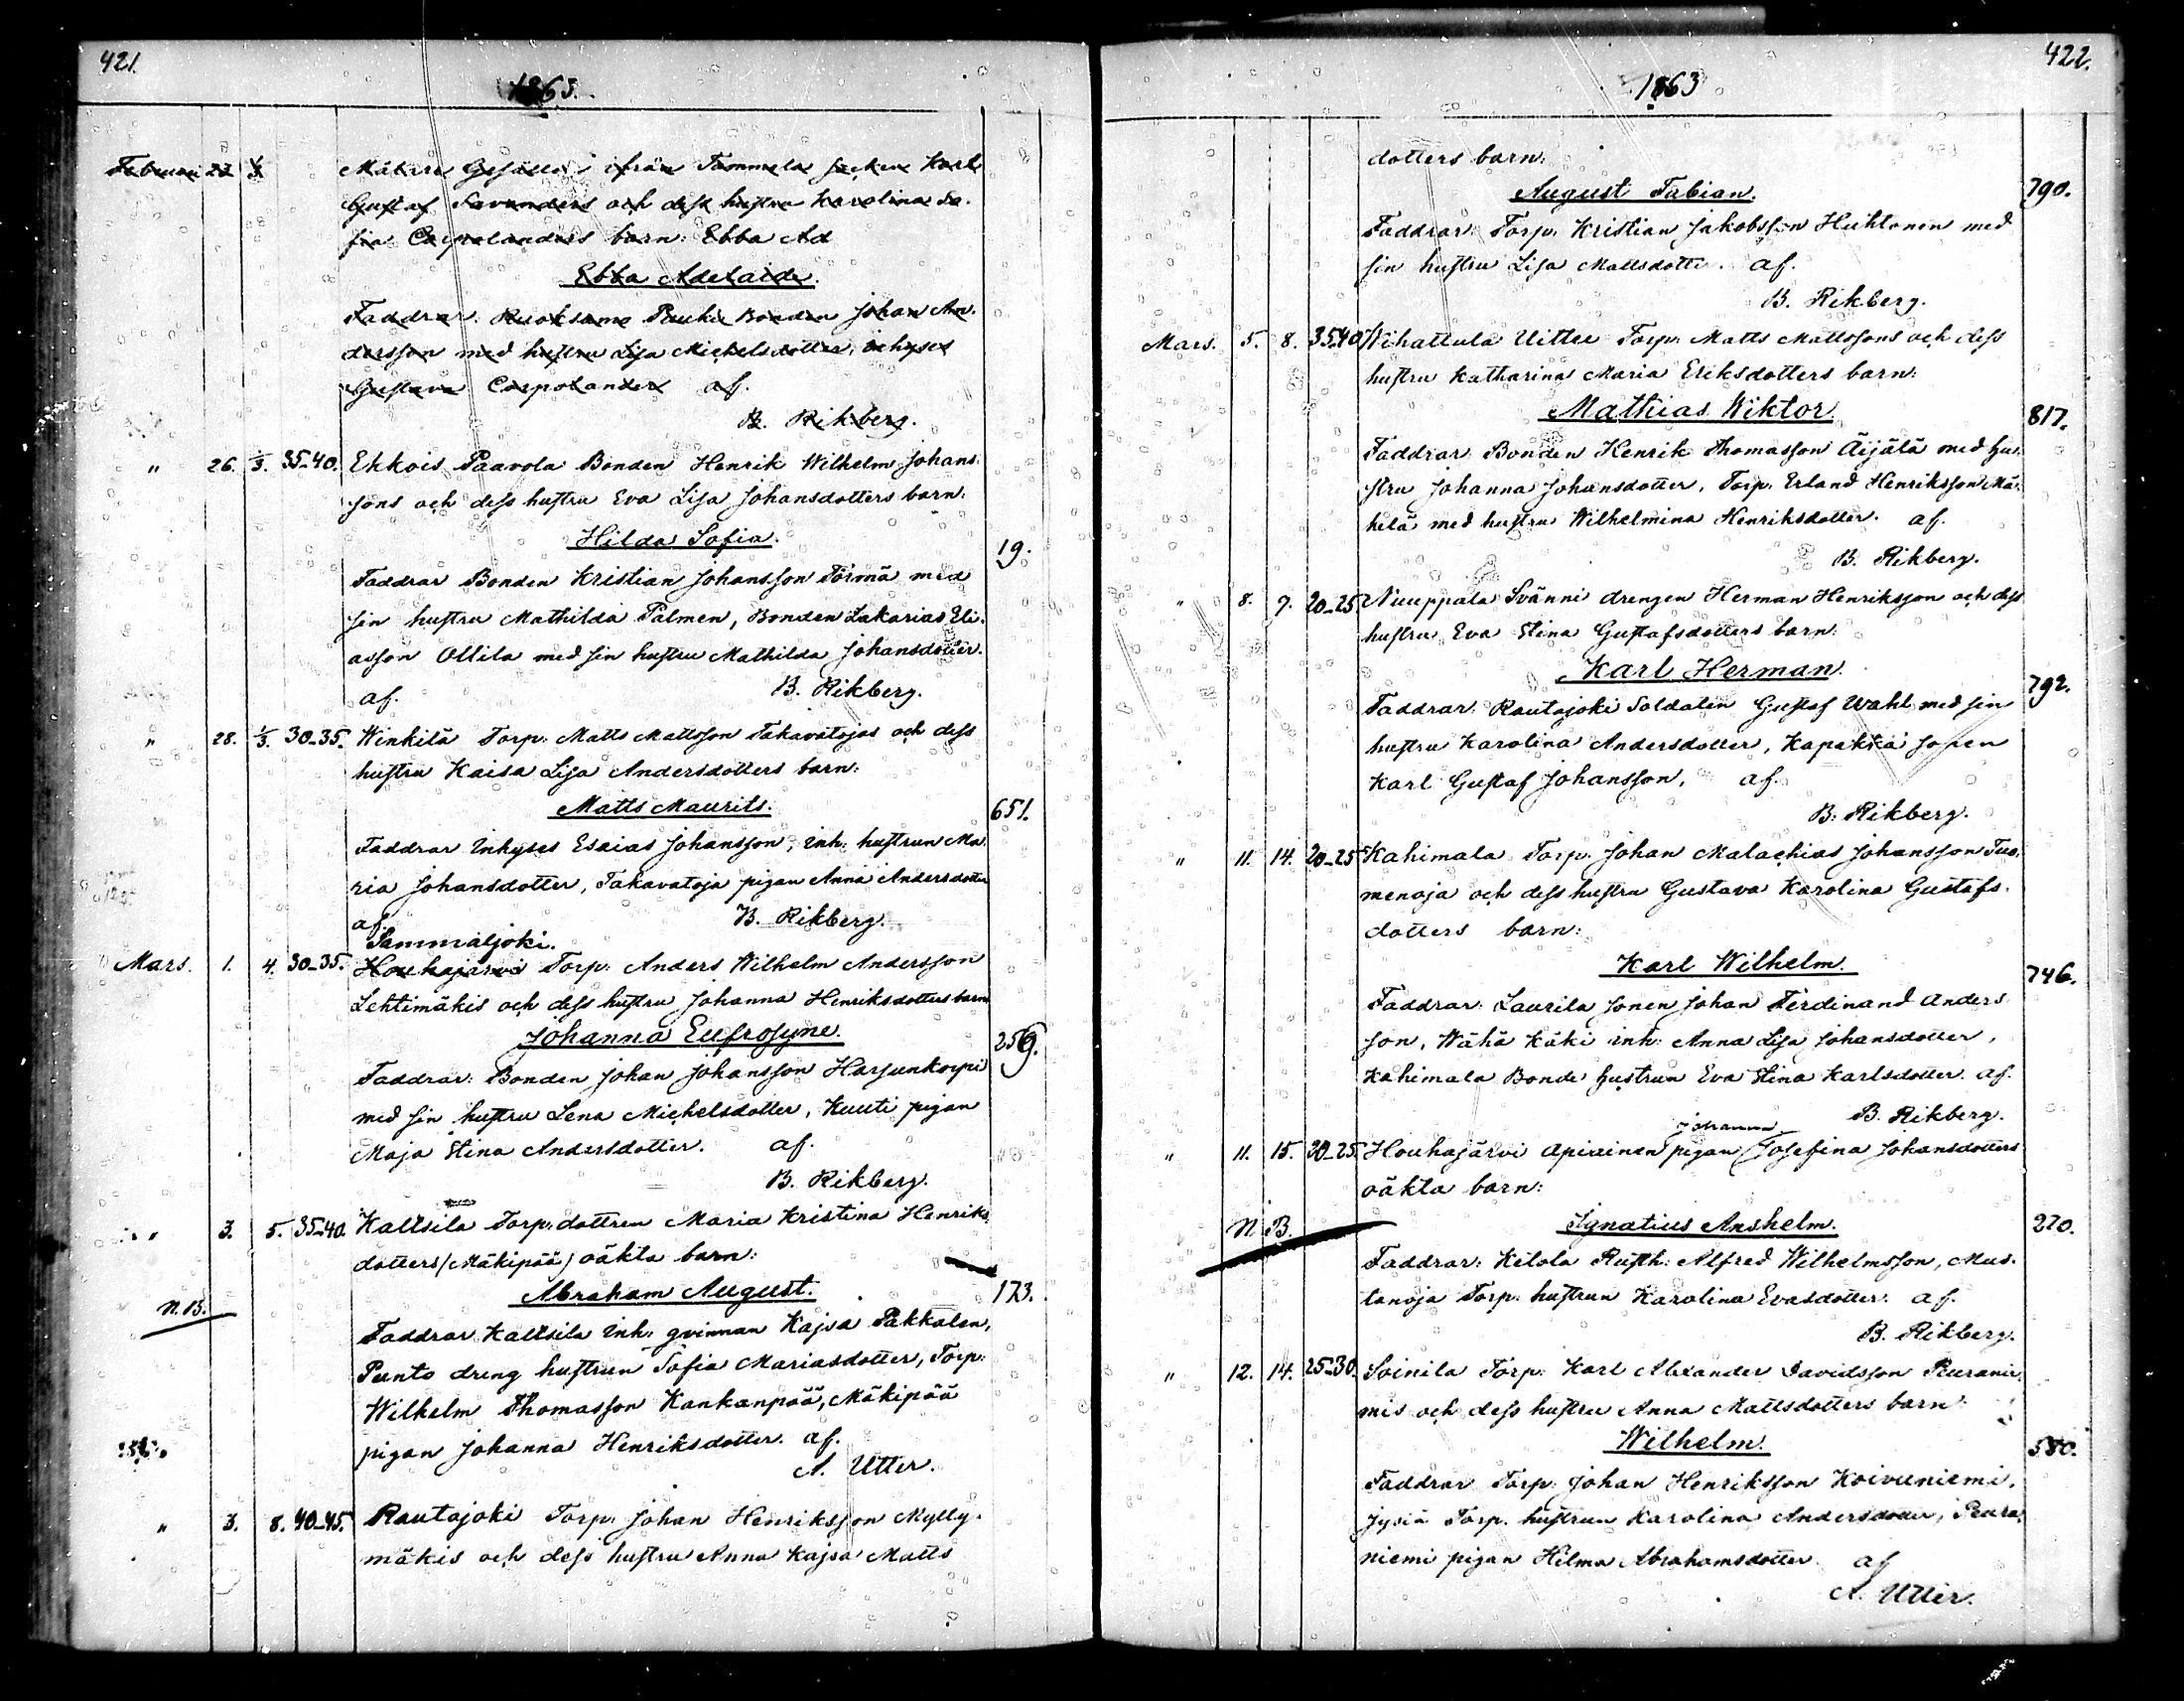 421.
1863.
Februari 22 1/3 Målare Gesällen ifrån Tammela Socken Karl
Gustaf Savanders och dess hustru Karolina So-
fia Carpolanders barn: Ebba Ad
Ebba Adelaide.
Faddrar: Ruoksamo Pauhu Bonden Johan An-
dersson med hustru Lisa Michelsdotter, inhyses
Gustava Carpolander af.
B. Rikberg.
" 26. 1/3. 35-40. Ekkois Paavola Bonden Henrik Wilhelm Johans-
sons och dess hustru Eva Lisa Johansdotters barn.
Hilda Sofia. 19.
Faddrar Bonden Kristian Johansson Törmä med
sin hustru Mathilda Palmen, Bonden Sakarias Eli-
asson Ollila med sin hustru Mathilda Johansdotter.
af. B. Rikberg.
" 28. 1/3. 30-35. Winkilä Torp: Matts Mattsson Takavatojas och dess
hustru Kaisa Lisa Andersdotters barn:
Matts Maurits. 651.
Faddrar Inhyses Esaias Johansson, inh: hustrun Ma-
ria Johansdotter, Takavatoja pigan Anna Andersdotter
af. B. Rikberg.
Sammaljoki.
Mars. 1. 4. 30-35. Houhajärvi Torp: Anders Wilhelm Andersson
Lehtimäkis och dess hustru Johanna Henriksdotters barn
Johanna Eufrosyne. 259.
Faddrar: Bonden Johan Johansson Harjunkorpi
med sin hustru Lena Michelsdotter, Kuuti pigan
Maja Stina Andersdotter. af.
B. Rikberg.
" 3. 5. 35-40. Kaltsila Torp. dottren Maria Kristina Henriks-
dotters (Mäkipää) oäkta barn:
Abraham August. 173.
N.B.
Faddrar Kaltsila inh: qvinnan Kajsa Pakkalen,
Punto dreng hustrun Sofia Mariasdotter, Torp:
Wilhelm Thomasson Kankanpää, Mäkipää
pigan Johanna Henriksdotter. af.
A. Utter.
" 3. 8. 40-45. Rautajoki Torp: Johan Henriksson Mylly-
mäkis och dess hustru Anna Kajsa Matts
422.
1863
dotters barn:
August Fabian. 790.
Faddrar: Torp: Kristian Jakobsson Huhtanen med
sin hustru Lisa Mattsdotter. af.
B. Rikberg.
Mars. 5. 8. 35-40 Wihattula Uittu Torp: Matts Mattssons och dess
hustru Katharina Maria Eriksdotters barn:
Mathias Wiktor. 817.
Faddrar: Bonden Henrik Thomasson Äijälä med hu-
stru Johanna Johansdotter, Torp: Erland Henriksson Mä-
kelä med hustru Wilhelmina Henriksdotter. af.
B. Rikberg.
" 8. 9. 20-25 Nuuppala Svänni drengen Herman Henriksson och dess
hustru Eva Stina Gustafsdotters barn:
Karl Herman. 792.
Faddrar: Rautajoki Soldaten Gustaf Wahl med sin
hustru Karolina Andersdotter, Kapakka sonen
Karl Gustaf Johansson, af.
B. Rikberg.
" 11. 14. 20-25 Kahimala Torp: Johan Malachias Johansson Tuo-
menoja och dess hustru Gustava Karolina Gustafs-
dotters barn:
Karl Wilhelm. 746.
Faddrar: Laurila sonen Johan Ferdinand Anders-
son, Wähä Käki inh: Anna Lisa Johansdotter,
Kahimala Bonde hustrun Eva Stina Karlsdotter. af.
B. Rikberg.
Johanna
" 11. 15. 20-25. Houhajärvi Apiainen pigan Josefina Johansdotters
oäkta barn:
N.B. Ignatius Anshelm. 270.
Faddrar: Kilola Rusth: Alfred Wilhelmsson, Mus-
tanoja Torp: hustrun Karolina Evasdotter. af.
B. Rikberg.
" 12. 14. 25-30. Soinila Torp: Karl Alexander Davidsson Peuranie-
mis och dess hustru Anna Mattsdotters barn:
Wilhelm. 580.
Faddrar Torp: Johan Henriksson Koivuniemi,
Jysiä Torp. hustrun Karolina Andersdotter, Peura-
niemi pigan Hilma Abrahamsdotter. af
A. Utter.